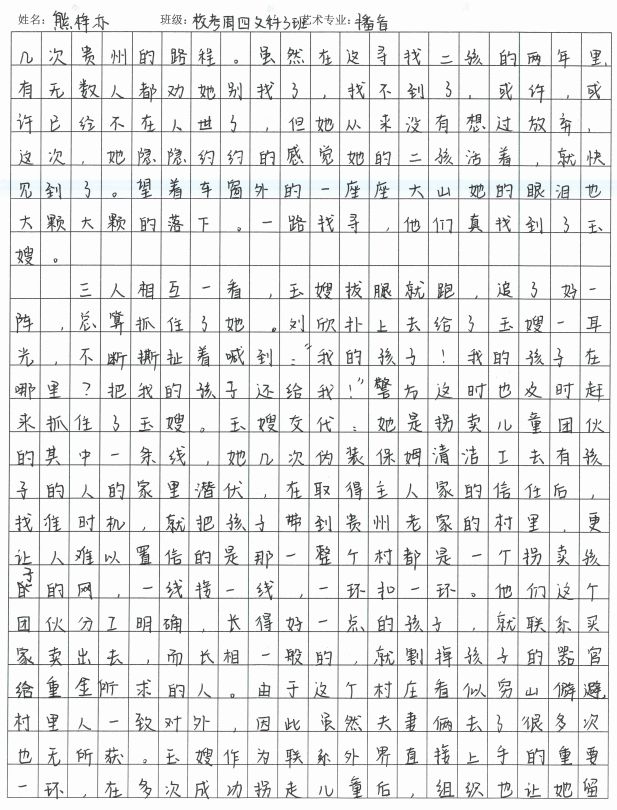 姓名：熊梓亦 班级：校考周四文科3班艺术专业：播音
几次贵州的路程。虽然在这寻找二孩的两年里,
有无数人都劝她别找了，找不到了，或许，或
许已经不在人世了，但她从来没有想过放弃，
这次，她隐隐约约的感觉她的二孩活着，就快
见到了。望着车窗外的一座座大山她的眼泪也
大颗大颗的落下。一路找寻，他们真找到了玉
嫂。
三人相互一看，玉嫂拔腿就跑，追了好一
阵，总算抓住了她。刘欣扑上去给了玉嫂一耳
光，不断撕扯着喊到：“我的孩子！我的孩子在
哪里？把我的孩子还给我！”警方这时也及时赶
来抓住了玉嫂。玉嫂交代：她是拐卖儿童团伙
的其中一条线，她几次伪装保姆清洁工去有孩
子的人的家里潜伏，在取得主人家的信任后，
找准时机，就把孩子带到贵州老家的村里，更
让人难以置信的是那一整个村都是一个拐卖孩
子的网，一线接一线，一环扣一环。他们这个
团伙分工明确，长得好一点的孩子，就联系买
家卖出去，而长相一般的，就割掉孩子的器官
给重金所求的人。由于这个村庄看似穷山僻避,
村里人一致对外，因此虽然夫妻俩去了很多次
也无所获。玉嫂作为联系外界直接上手的重要
一环，在多次成功拐走儿童后，组织也让她留